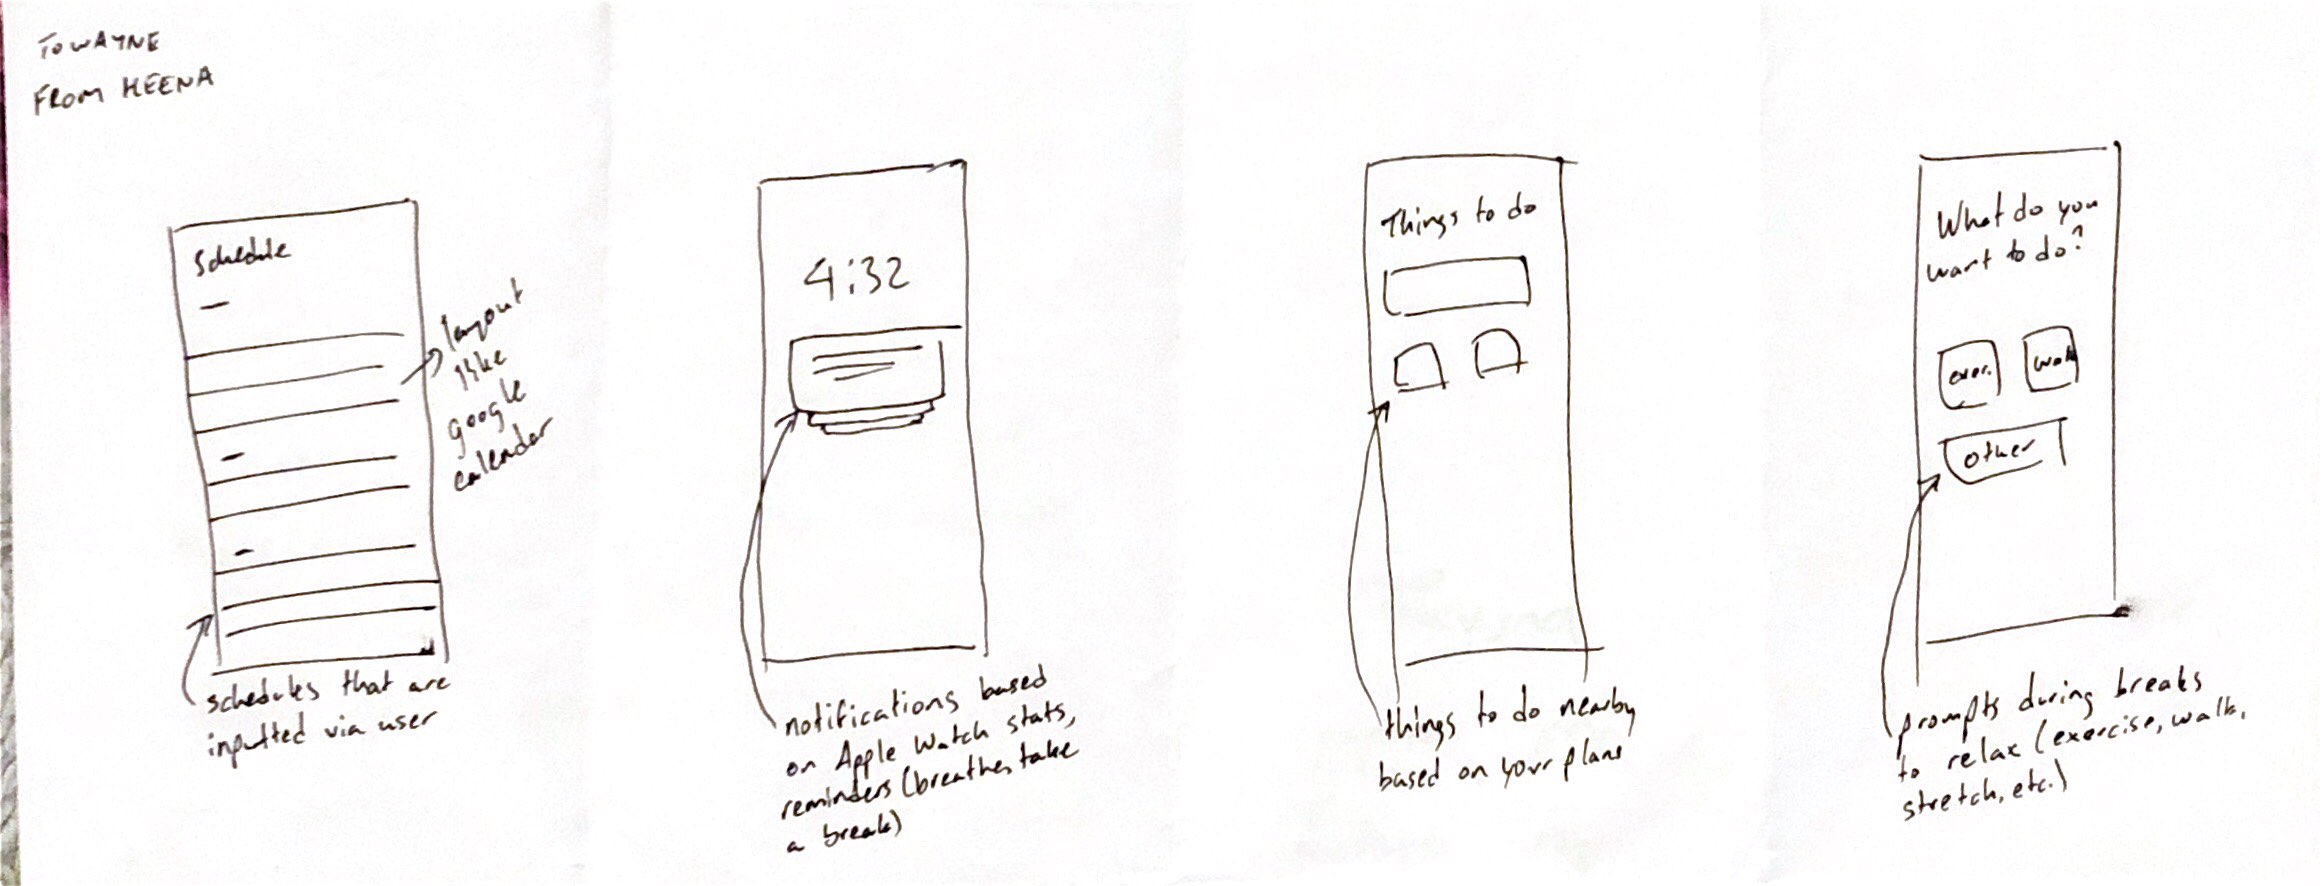 TO WAYNE
FROM HEENA
Schedule
layout
like
google
calendar
schedules that are
inputted via user
4:32
notifications based
on Apple Watch stats,
reminders (breathe, take
a break)
Things to do
things to do nearby
based on your plans
What do you
want to do?
exer.
walk
other
prompts during breaks
to relax (exercise, walk,
stretch, etc.)